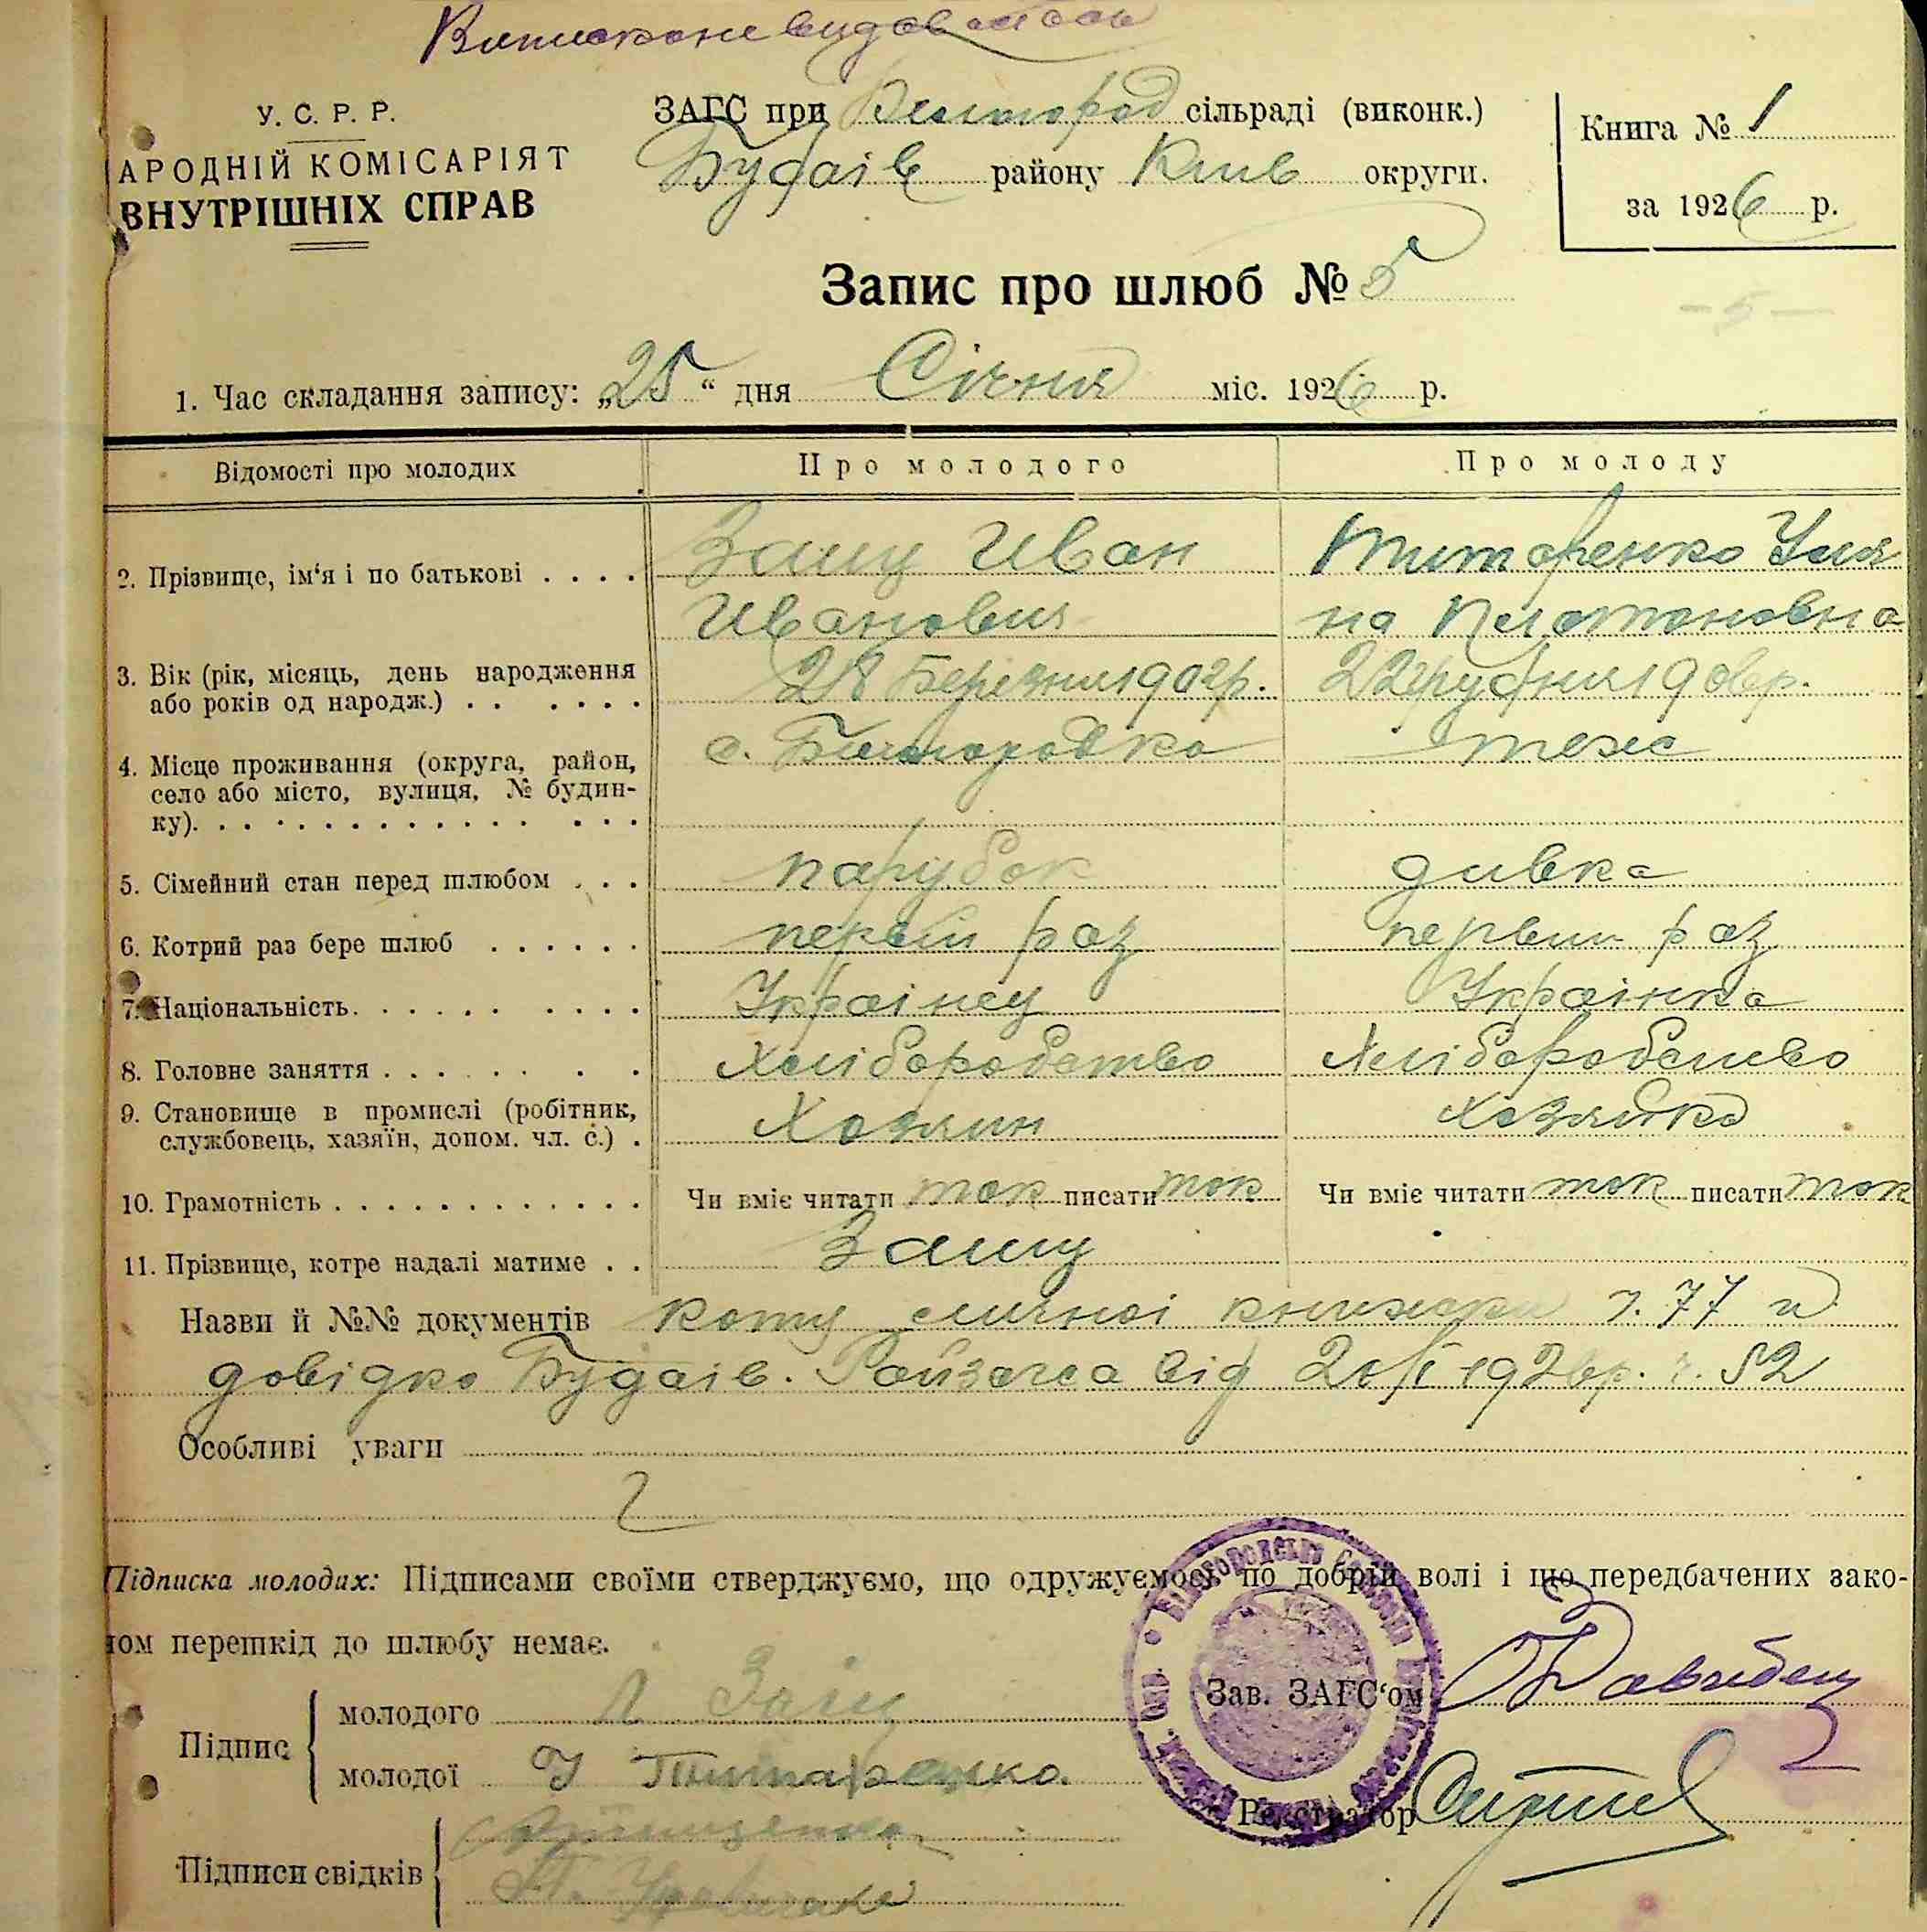 У. С. Р. Р.
АРОДНІЙ КОМІСАРІЯТ
ВНУТРІШНІХ СПРАВ
ЗАГС при Билогород сільраді (виконк.)
Будаів району Київ округи.
Книга № 1
за 1926 р.
Запис про шлюб № 5
- 5 -
1. Час складання запису: „25“ дня Січня міс. 1926 р.
Відомості про молодих Про молодого Про молоду
2. Прізвище, ім'я і по батькові . . . . Заиц Иван Титаренко Уля
Иванович на Платоновна
3. Вік (рік, місяць, день народження 28 Березня 1902р. 22 грудня 1906р.
або років од народж.) . . . . . .
4. Місце проживання (округа, район, с. Билогородка теж
село або місто, вулиця, № будин-
ку). . . . . . . . . . . . . . . .
5. Сімейний стан перед шлюбом . . . парубок дивка
6. Котрий раз бере шлюб . . . . . . первий раз первий раз
7. Національність. . . . . . . . . . Украінец Украінка
8. Головне заняття . . . . . . . . Хлібородство Хлібородство
9. Становище в промислі (робітник, Хозяин Хозяйка
службовець, хазяїн, допом. чл. с.) .
10. Грамотність . . . . . . . . . . . . . Чи вміє читати так писати так Чи вміє читати так писати так
11. Прізвище, котре надалі матиме . . Заиц
Назви й №№ документів книжки 77
довідка Будаів. Райзагса від 20/I 1926р. ч. 52
Особливі уваги
Підписка молодих: Підписами своїми стверджуємо, що одружуємось по добрій волі і що передбачених зако-
ном перешкід до шлюбу немає.
Підпис
молодого Заіц
молодої У Титаренко.
Зав. ЗАГС'ом
Реєстратор
Підписи свідків